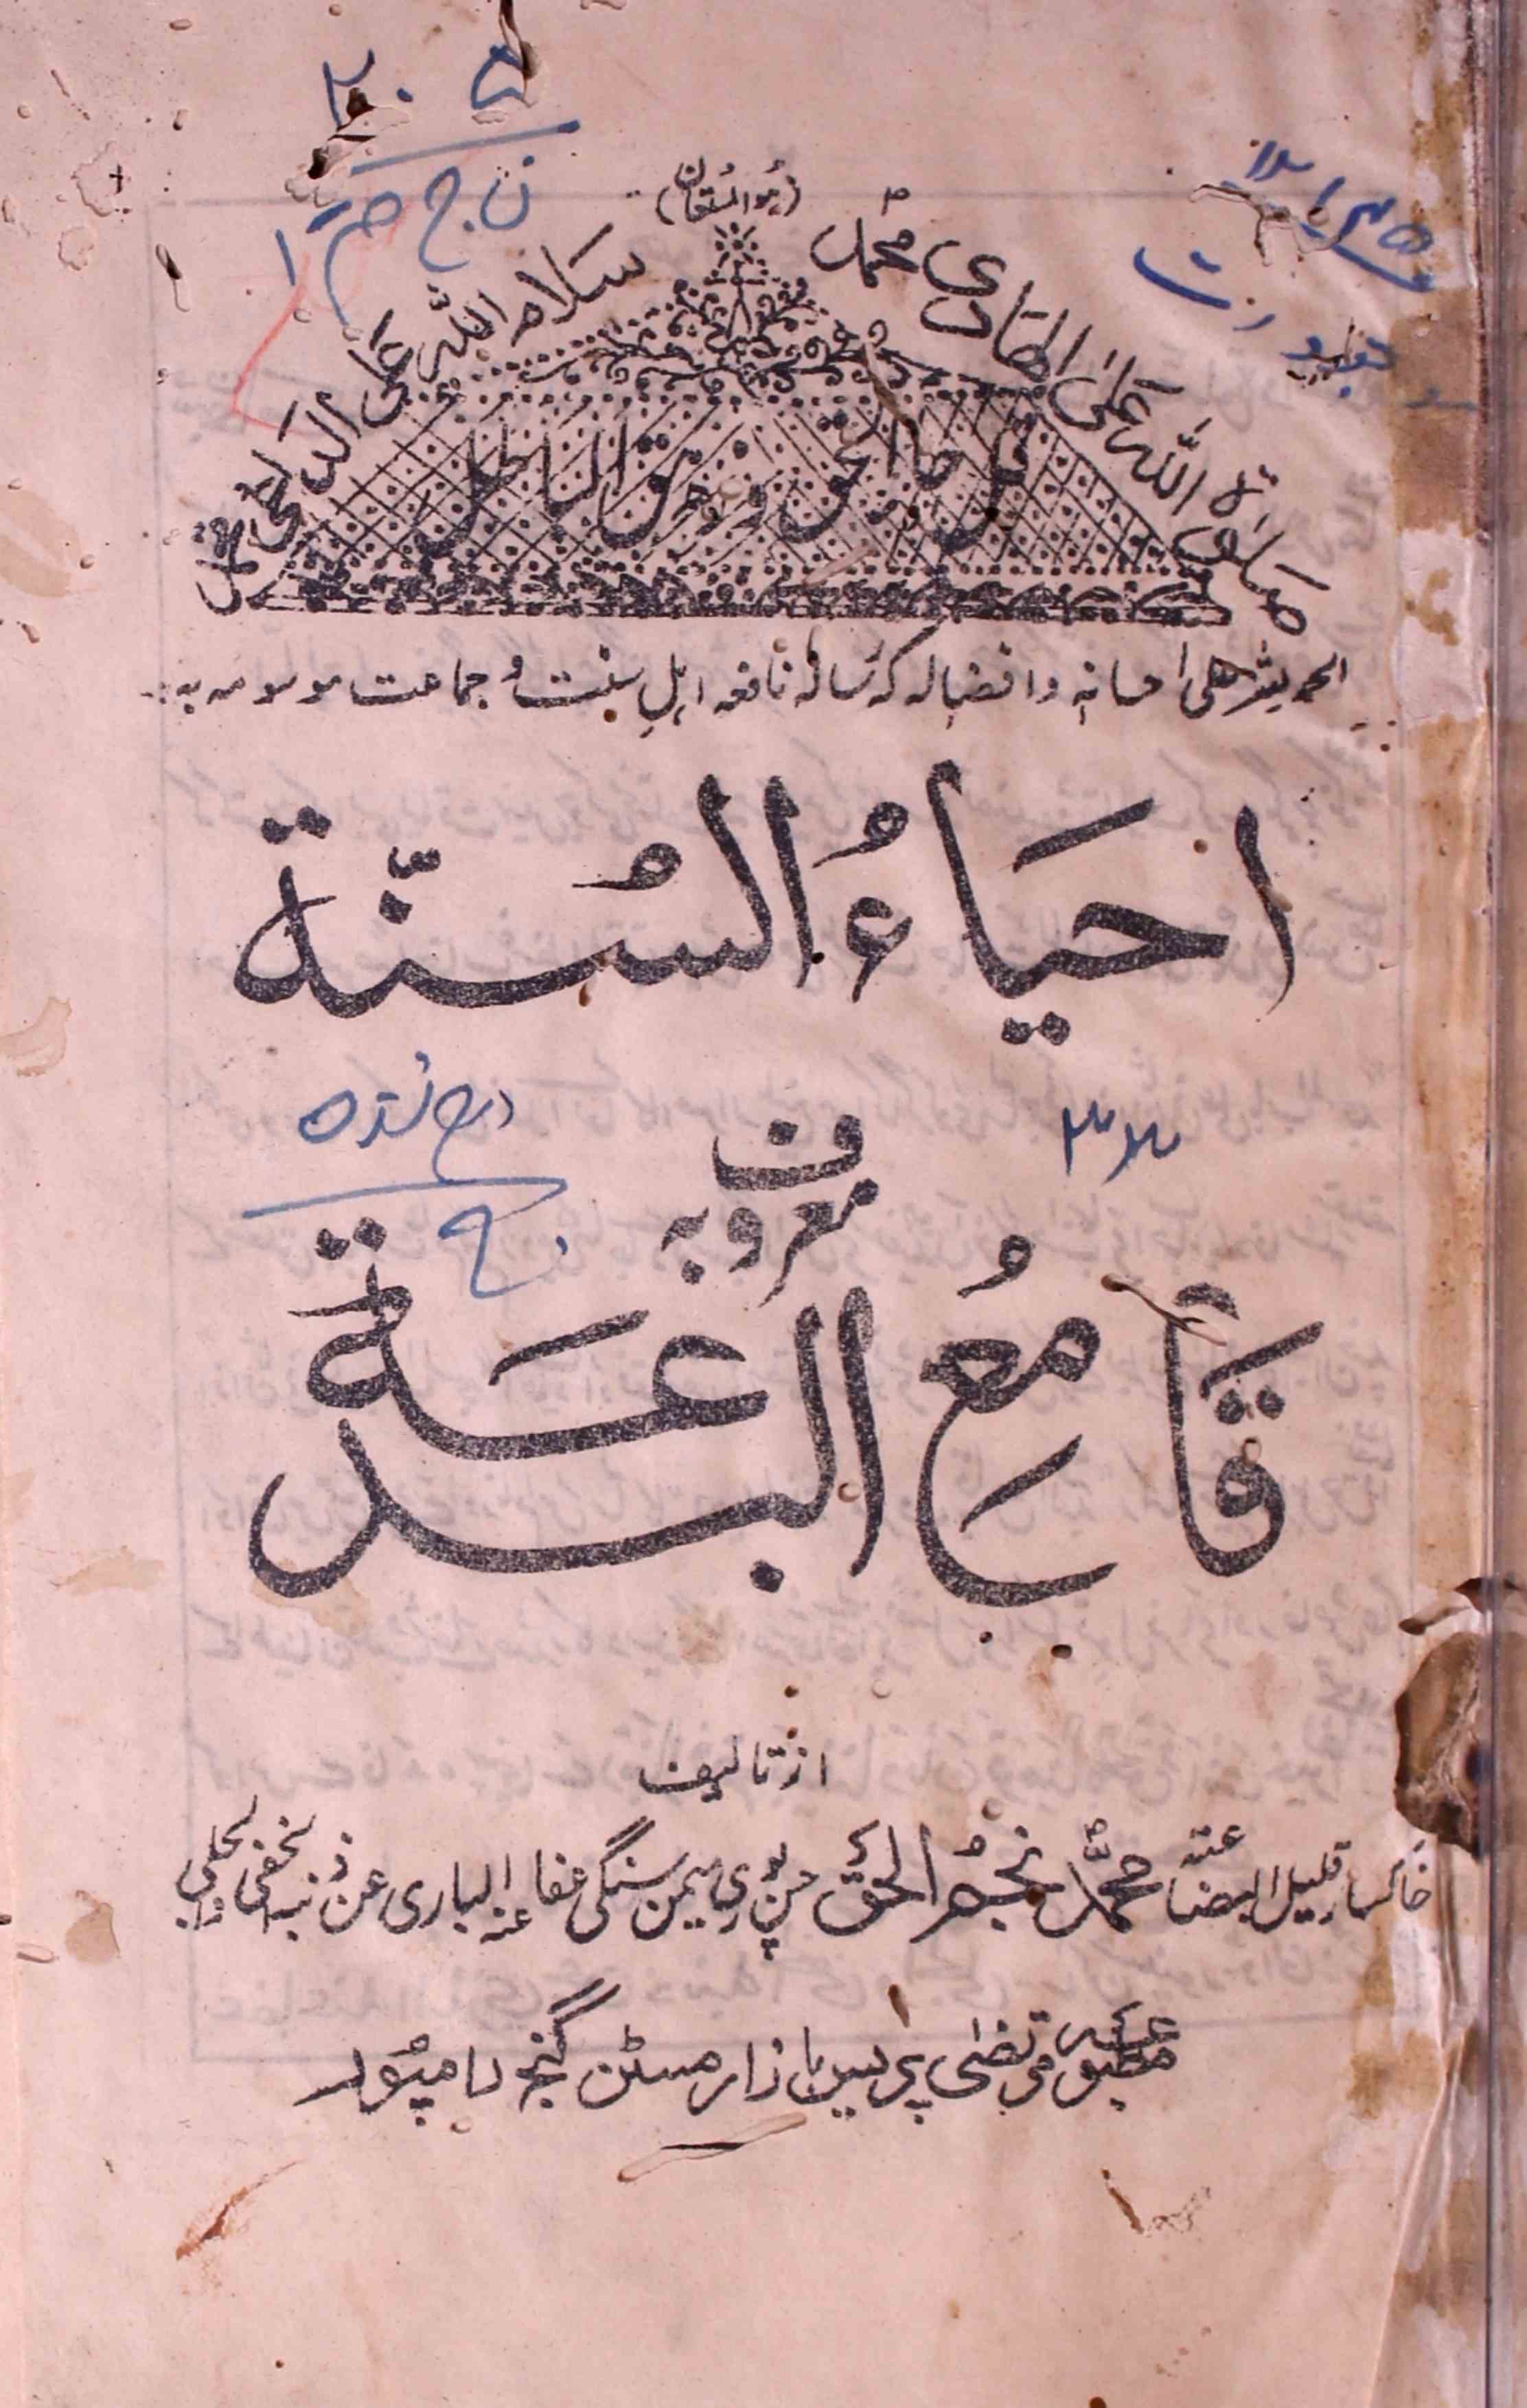 (ہو المستعان)
صلوٰة اللہ علی الھادی محمدؐ
سلام اللہ علی الداعی محمد
قل جاء الحق وزھق الباطل
الحمد للہ علی احسانہ وافضالہ کہ رسالہ نافعہ اہل سنت و جماعت موسومہ بہ
احیَاءُ السُنّة
معروف بہ
قَامِعُ البدعَة
از تالیف
خاکسار قلیل البضاعتہ محمدؐ نجم الحق حسن پوری میمن سنگی عفا عنہ الباری عن ذنبہ الخفی والجلی
مطبوعہ مرتضٰی پریس بازار مسٹن گنج رامپور